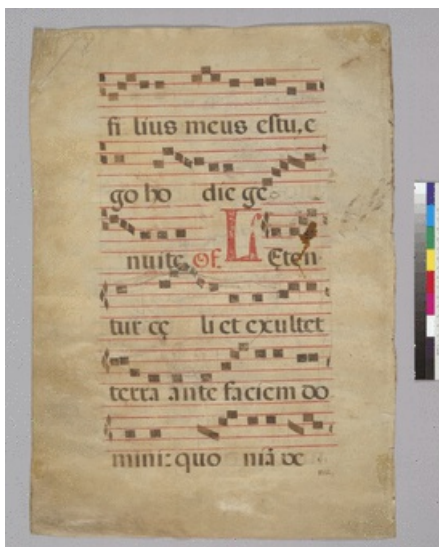 fi lius meus es tu, e
go ho die ge
nui te of. L Eten
tur cę li et exultet
terra ante faciem do
mini: quo niā ve